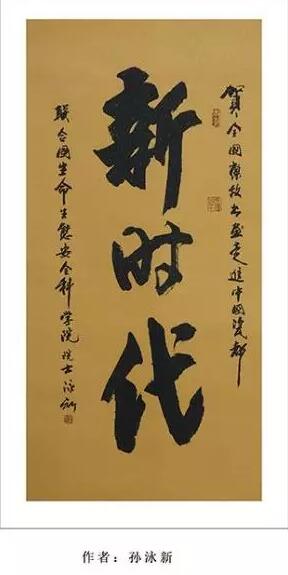 贺全国艺牧书画走进中国瓷都
新时代
联合国生命生态安全科学院院士泳新
作者：孙泳新